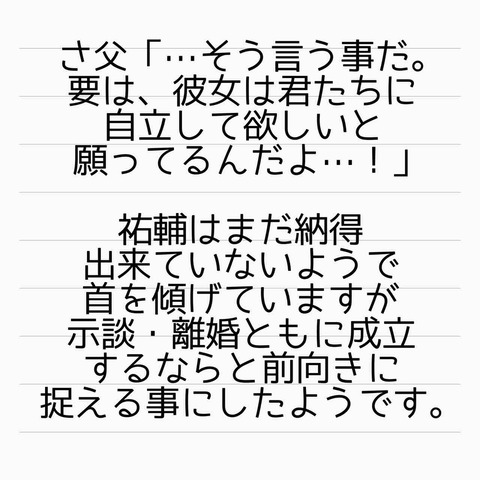 さ父「…そう言う事だ。
要は、彼女は君たちに
自立して欲しいと
願ってるんだよ…！」
祐輔はまだ納得
出来ていないようで
首を傾げていますが
示談・離婚ともに成立
するならと前向きに
捉える事にしたようです。